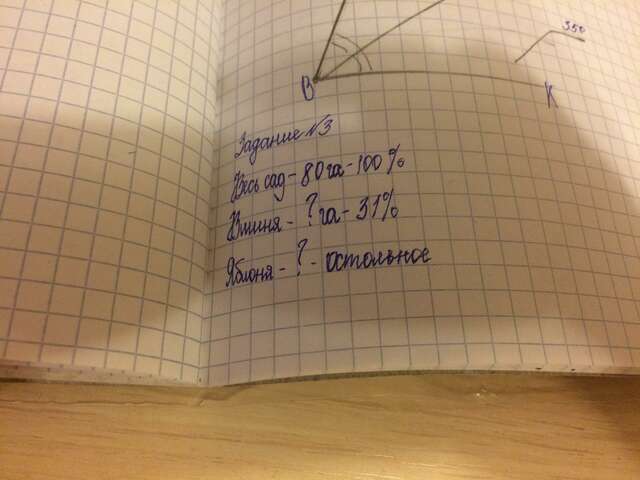 350
В
К
Задание №3
Весь сад - 80 га - 100%
Вишня - ? га - 31%
Яблоня - ? - остольное